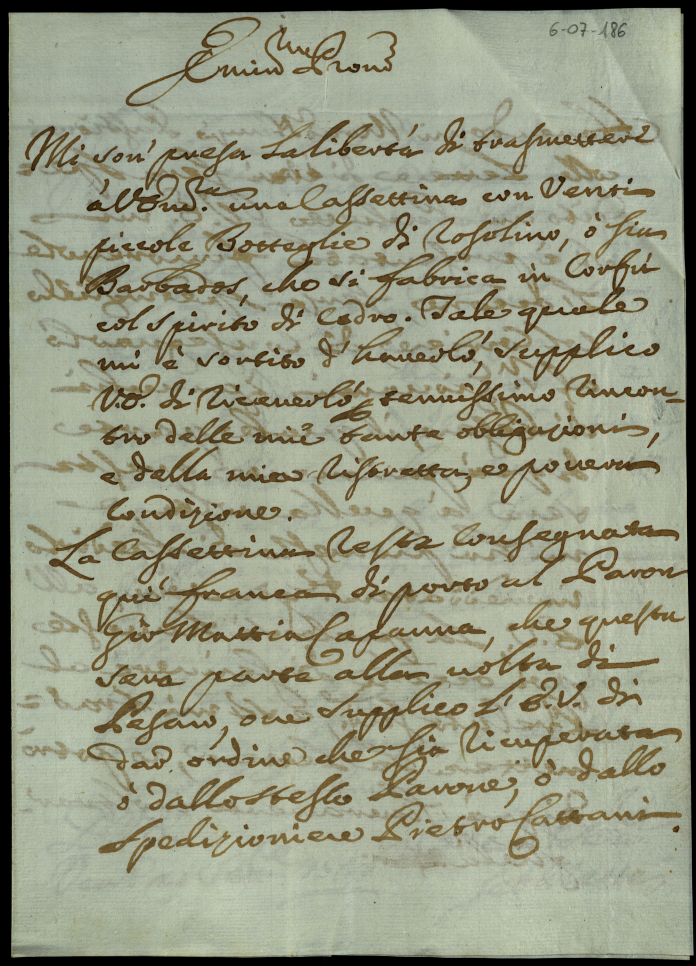 6-07-186
Emin.mo Prone
Mi son' presa La libertà di trasmettere
à V.Em.za una Cassettina con Venti
piccole Botteglie di Rosolino, ò sia
Barbados, che si fabrica in Corfù
col spirito di Cedro. Tale quale
mi è sortito d'haverlo, supplico
V.E. di riceverlo tenuissimo rincon-
tro delle mie tante obbligazioni,
e della mia ristretta, e povera
Condizione.
La Cassettina resta Consegnata
qui franca di porto al Paron
Gio Mattia Capanna, che questa
sera parte alla volta di
Pesaro, ove supplico L'E.V. di
dar ordine che sia ricuperata
ò dallo stesso Parone, ò dallo
Spedizioniere Pietro Cattani.